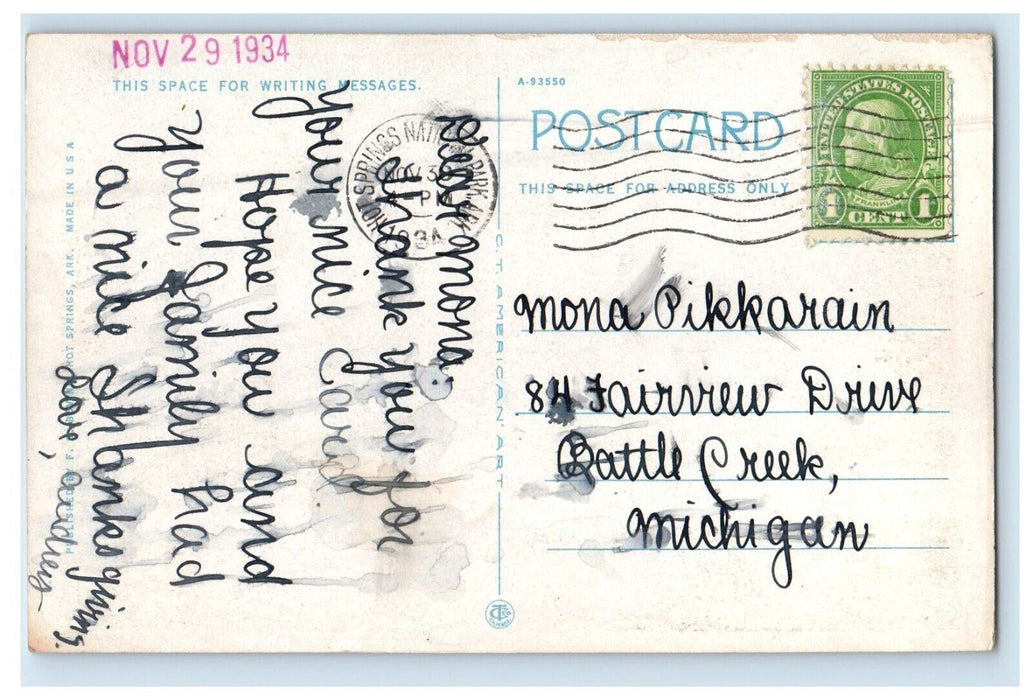 NOV 29 1934
THIS SPACE FOR WRITING MESSAGES.
Dear Mona,
Thank you for
your nice Card
Hope you and
your Family had
a nice Thanksgiving.
Love,
PUBLISHED BY F. HOT SPRINGS, ARK. MADE IN U.S.A
HOT SPRINGS NATIONAL PARK ARK
NOV 30
PM
1934
C.T. AMERICAN ART
A-93550
POST CARD
THIS SPACE FOR ADDRESS ONLY
UNITED STATES POSTAGE
FRANKLIN
1 CENT 1
Mona Pikkarain
84 Fairview Drive
Battle Creek,
Michigan